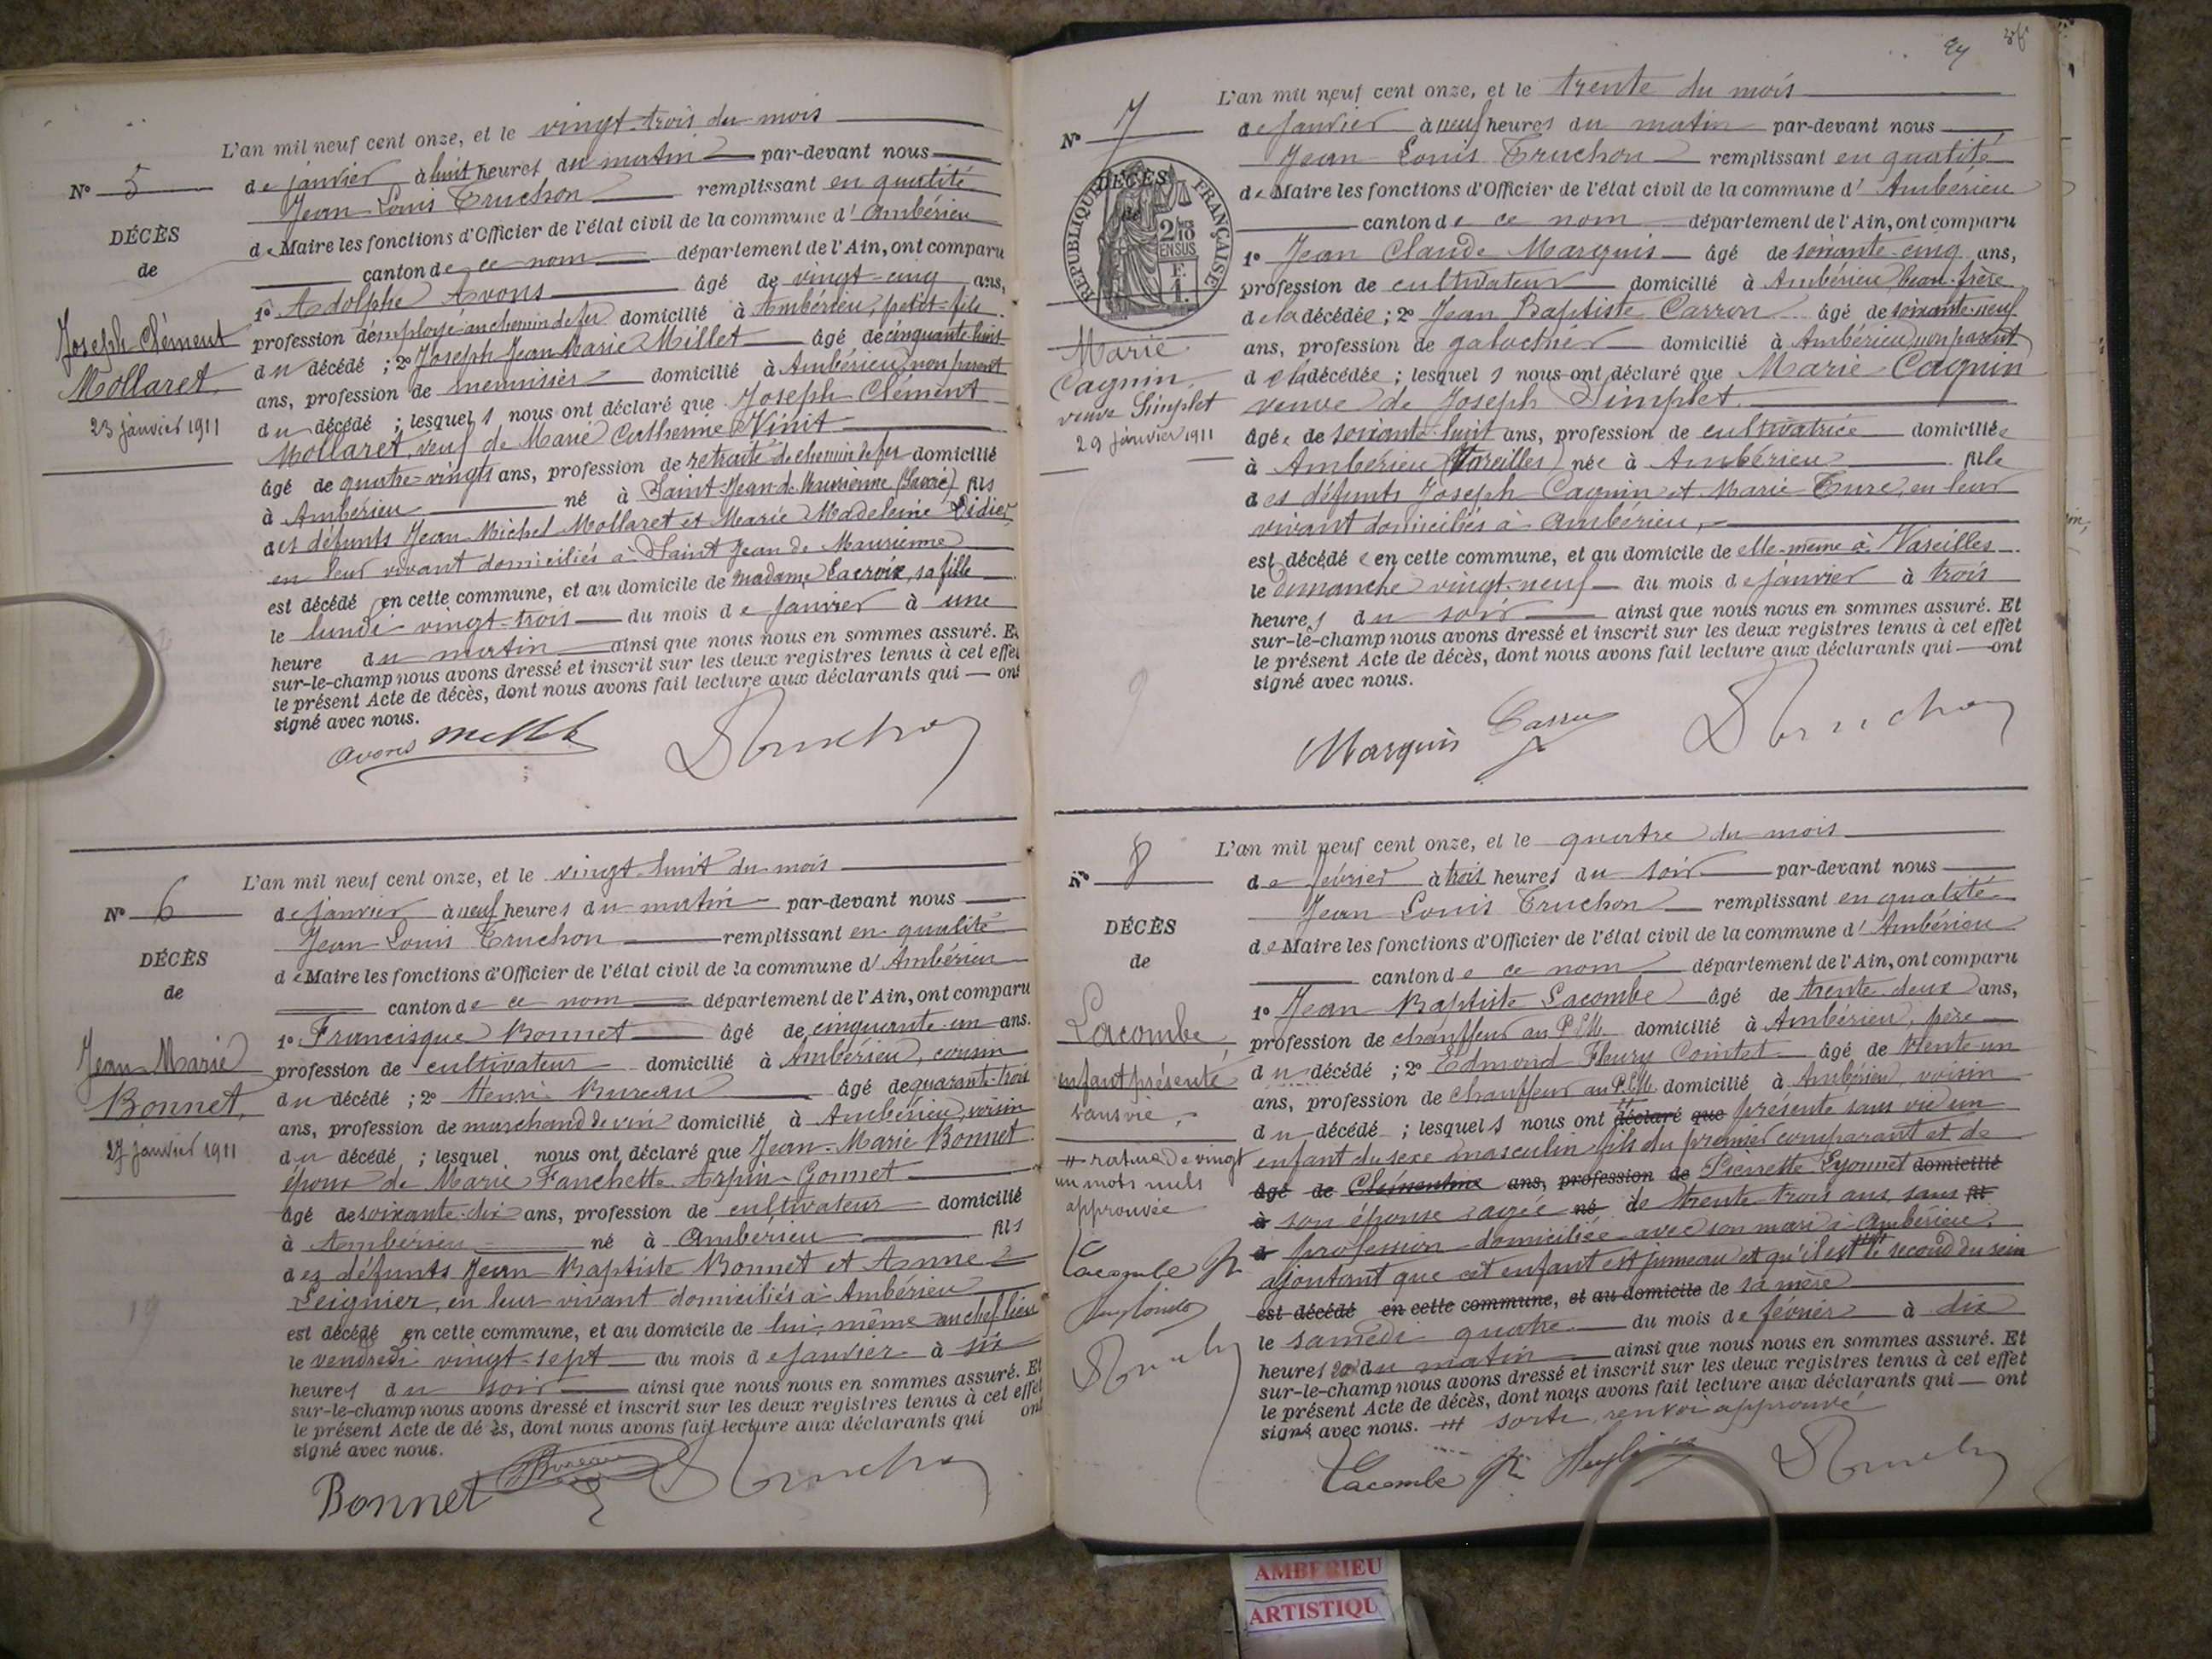 L'an mil neuf cent onze, et le vingt-trois du mois
N° 5
de janvier à huit heures du matin par-devant nous
Jean-Louis Truchon remplissant en qualité
DÉCÈS
de Maire les fonctions d'Officier de l'état civil de la commune d'Ambérieu
de
canton de ce nom département de l'Ain, ont comparu
1° Adolphe Avons âgé de vingt-cinq ans,
Joseph Clément
profession d'employé au chemin de fer domicilié à Ambérieu, petit-fils
Mollaret
du décédé ; 2° Joseph Jean Marie Millet âgé de cinquante-huit
ans, profession de menuisier domicilié à Ambérieu, non parent
23 janvier 1911
du décédé ; lesquels nous ont déclaré que Joseph Clément
Mollaret, veuf de Marie Catherine Vinit
âgé de quatre-vingts ans, profession de retraité de chemin de fer domicilié
à Ambérieu né à Saint-Jean de Maurienne (Savoie) fils
des défunts Jean Michel Mollaret et Marie Madeleine Didier
en leur vivant domiciliés à Saint Jean de Maurienne
est décédé en cette commune, et au domicile de madame Lacroix, sa fille
le lundi vingt-trois du mois de janvier à une
heure du matin ainsi que nous nous en sommes assuré. Et
sur-le-champ nous avons dressé et inscrit sur les deux registres tenus à cet effet
le présent Acte de décès, dont nous avons fait lecture aux déclarants qui ont
signé avec nous.
Avons Millet Truchon
L'an mil neuf cent onze, et le vingt-huit du mois
N° 6
de janvier à neuf heures du matin par-devant nous
Jean-Louis Truchon remplissant en qualité
DÉCÈS
de Maire les fonctions d'Officier de l'état civil de la commune d'Ambérieu
de
canton de ce nom département de l'Ain, ont comparu
1° Francisque Bonnet âgé de cinquante-un ans.
Jean-Marie
profession de cultivateur domicilié à Ambérieu, cousin
Bonnet
du décédé ; 2° Henri Bureau âgé de quarante-trois
ans, profession de marchand de vin domicilié à Ambérieu, voisin
27 janvier 1911
du décédé ; lesquel nous ont déclaré que Jean-Marie Bonnet
époux de Marie Fanchette Arpin-Gonnet
âgé de soixante-dix ans, profession de cultivateur domicilié
à Ambérieu né à Ambérieu fils
des défunts Jean Baptiste Bonnet et Anne
Seignier, en leur vivant domiciliés à Ambérieu
est décédé en cette commune, et au domicile de lui-même au chef lieu
le vendredi vingt-sept du mois de janvier à six
heures du soir ainsi que nous nous en sommes assuré. Et
sur-le-champ nous avons dressé et inscrit sur les deux registres tenus à cet effet
le présent Acte de dé ès, dont nous avons fait lecture aux déclarants qui ont
signé avec nous.
Bonnet Bureau Truchon
L'an mil neuf cent onze, et le trente du mois
N° 7
de janvier à neuf heures du matin par-devant nous
Jean-Louis Truchon remplissant en qualité
RÉPUBLIQUE FRANÇAISE
DÉCÈS
de
2/10 EN SUS
F. 1.
de Maire les fonctions d'Officier de l'état civil de la commune d'Ambérieu
canton de ce nom département de l'Ain, ont comparu
1° Jean Claude Marquis âgé de soixante-cinq ans,
profession de cultivateur domicilié à Ambérieu beau-frère
de la décédée ; 2° Jean Baptiste Carron âgé de soixante-neuf
Marie
ans, profession de galochier domicilié à Ambérieu non parent
Cagnin
de la décédée ; lesquels nous ont déclaré que Marie Cagnin
veuve Simplet
veuve de Joseph Simplet
29 janvier 1911
âgée de soixante-huit ans, profession de cultivatrice domiciliée
à Ambérieu (Vareilles) née à Ambérieu fille
des défunts Joseph Cagnin et Marie Ture, en leur
vivant domiciliés à Ambérieu,
est décédée en cette commune, et au domicile de elle-même à Vareilles
le dimanche vingt-neuf du mois de janvier à trois
heures du soir ainsi que nous nous en sommes assuré. Et
sur-le-champ nous avons dressé et inscrit sur les deux registres tenus à cet effet
le présent Acte de décès, dont nous avons fait lecture aux déclarants qui ont
signé avec nous.
Marquis Carron Truchon
L'an mil neuf cent onze, et le quatre du mois
N° 8
de février à trois heures du soir par-devant nous
Jean Louis Truchon remplissant en qualité
DÉCÈS
de Maire les fonctions d'Officier de l'état civil de la commune d'Ambérieu
de
canton de ce nom département de l'Ain, ont comparu
1° Jean Baptiste Lacombe âgé de trente-deux ans,
Lacombe
profession de chauffeur au P.L.M. domicilié à Ambérieu, père
enfant présenté
du décédé ; 2° Edmond Fleury Cointet âgé de trente-un
sans vie
ans, profession de chauffeur au P.L.M. domicilié à Ambérieu, voisin
du décédé ; lesquels nous ont déclaré que présenté sans vie un
# rature de vingt
enfant du sexe masculin fils du premier comparant et de
un mots nuls
âgé de Clémentine ans, profession de Pierrette Lyonnet domicilié
approuvée
à son épouse âgée né de trente-trois ans sans fil
d profession domiciliée avec son mari à Ambérieu,
Lacombe
ajoutant que cet enfant est jumeau et qu'il est le second du sein
est décédé en cette commune, et au domicile de sa mère
le samedi quatre du mois de février à dix
Truchon
heures 20 du matin ainsi que nous nous en sommes assuré. Et
sur-le-champ nous avons dressé et inscrit sur les deux registres tenus à cet effet
le présent Acte de décès, dont nous avons fait lecture aux déclarants qui ont
signé avec nous. sorti, renvoi approuvé
Lacombe Truchon
AMBERIEU
ARTISTIQU